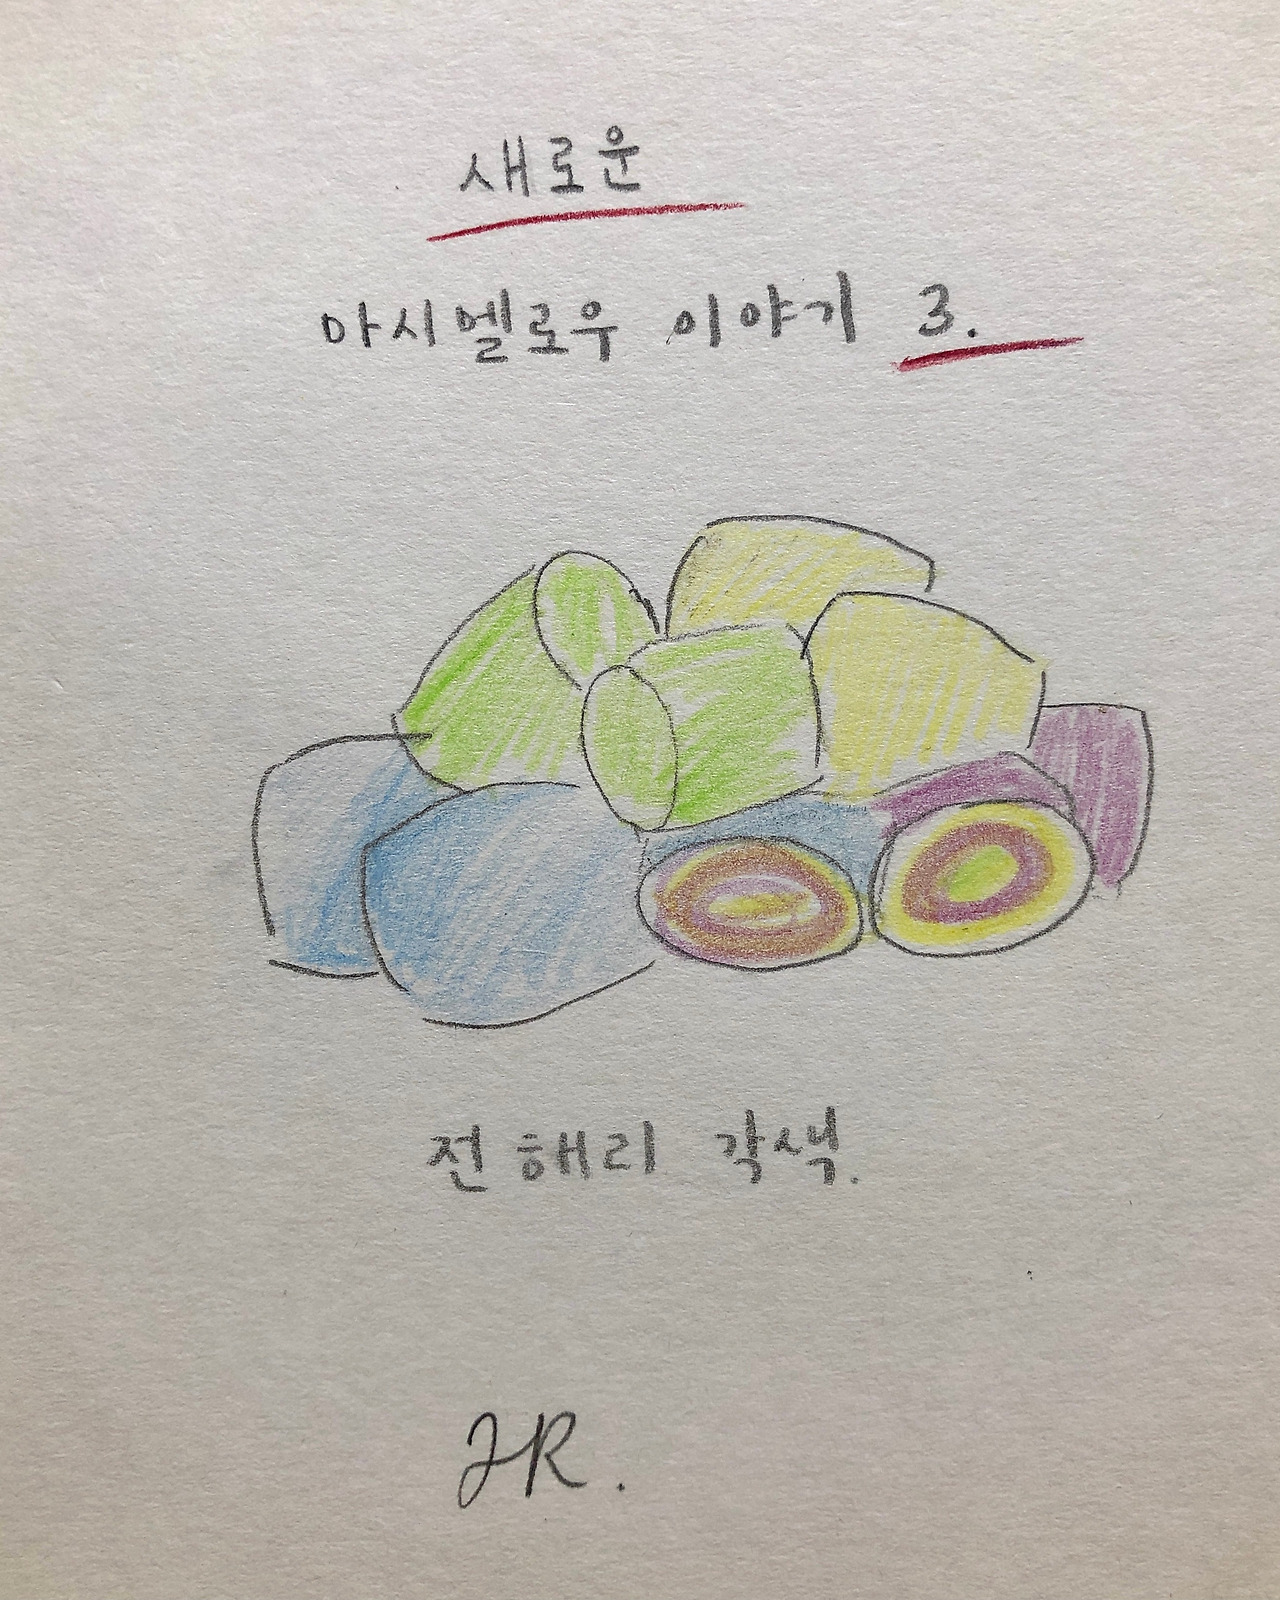 새로운
마시멜로우 이야기 3.
전해리 각색.
JR.